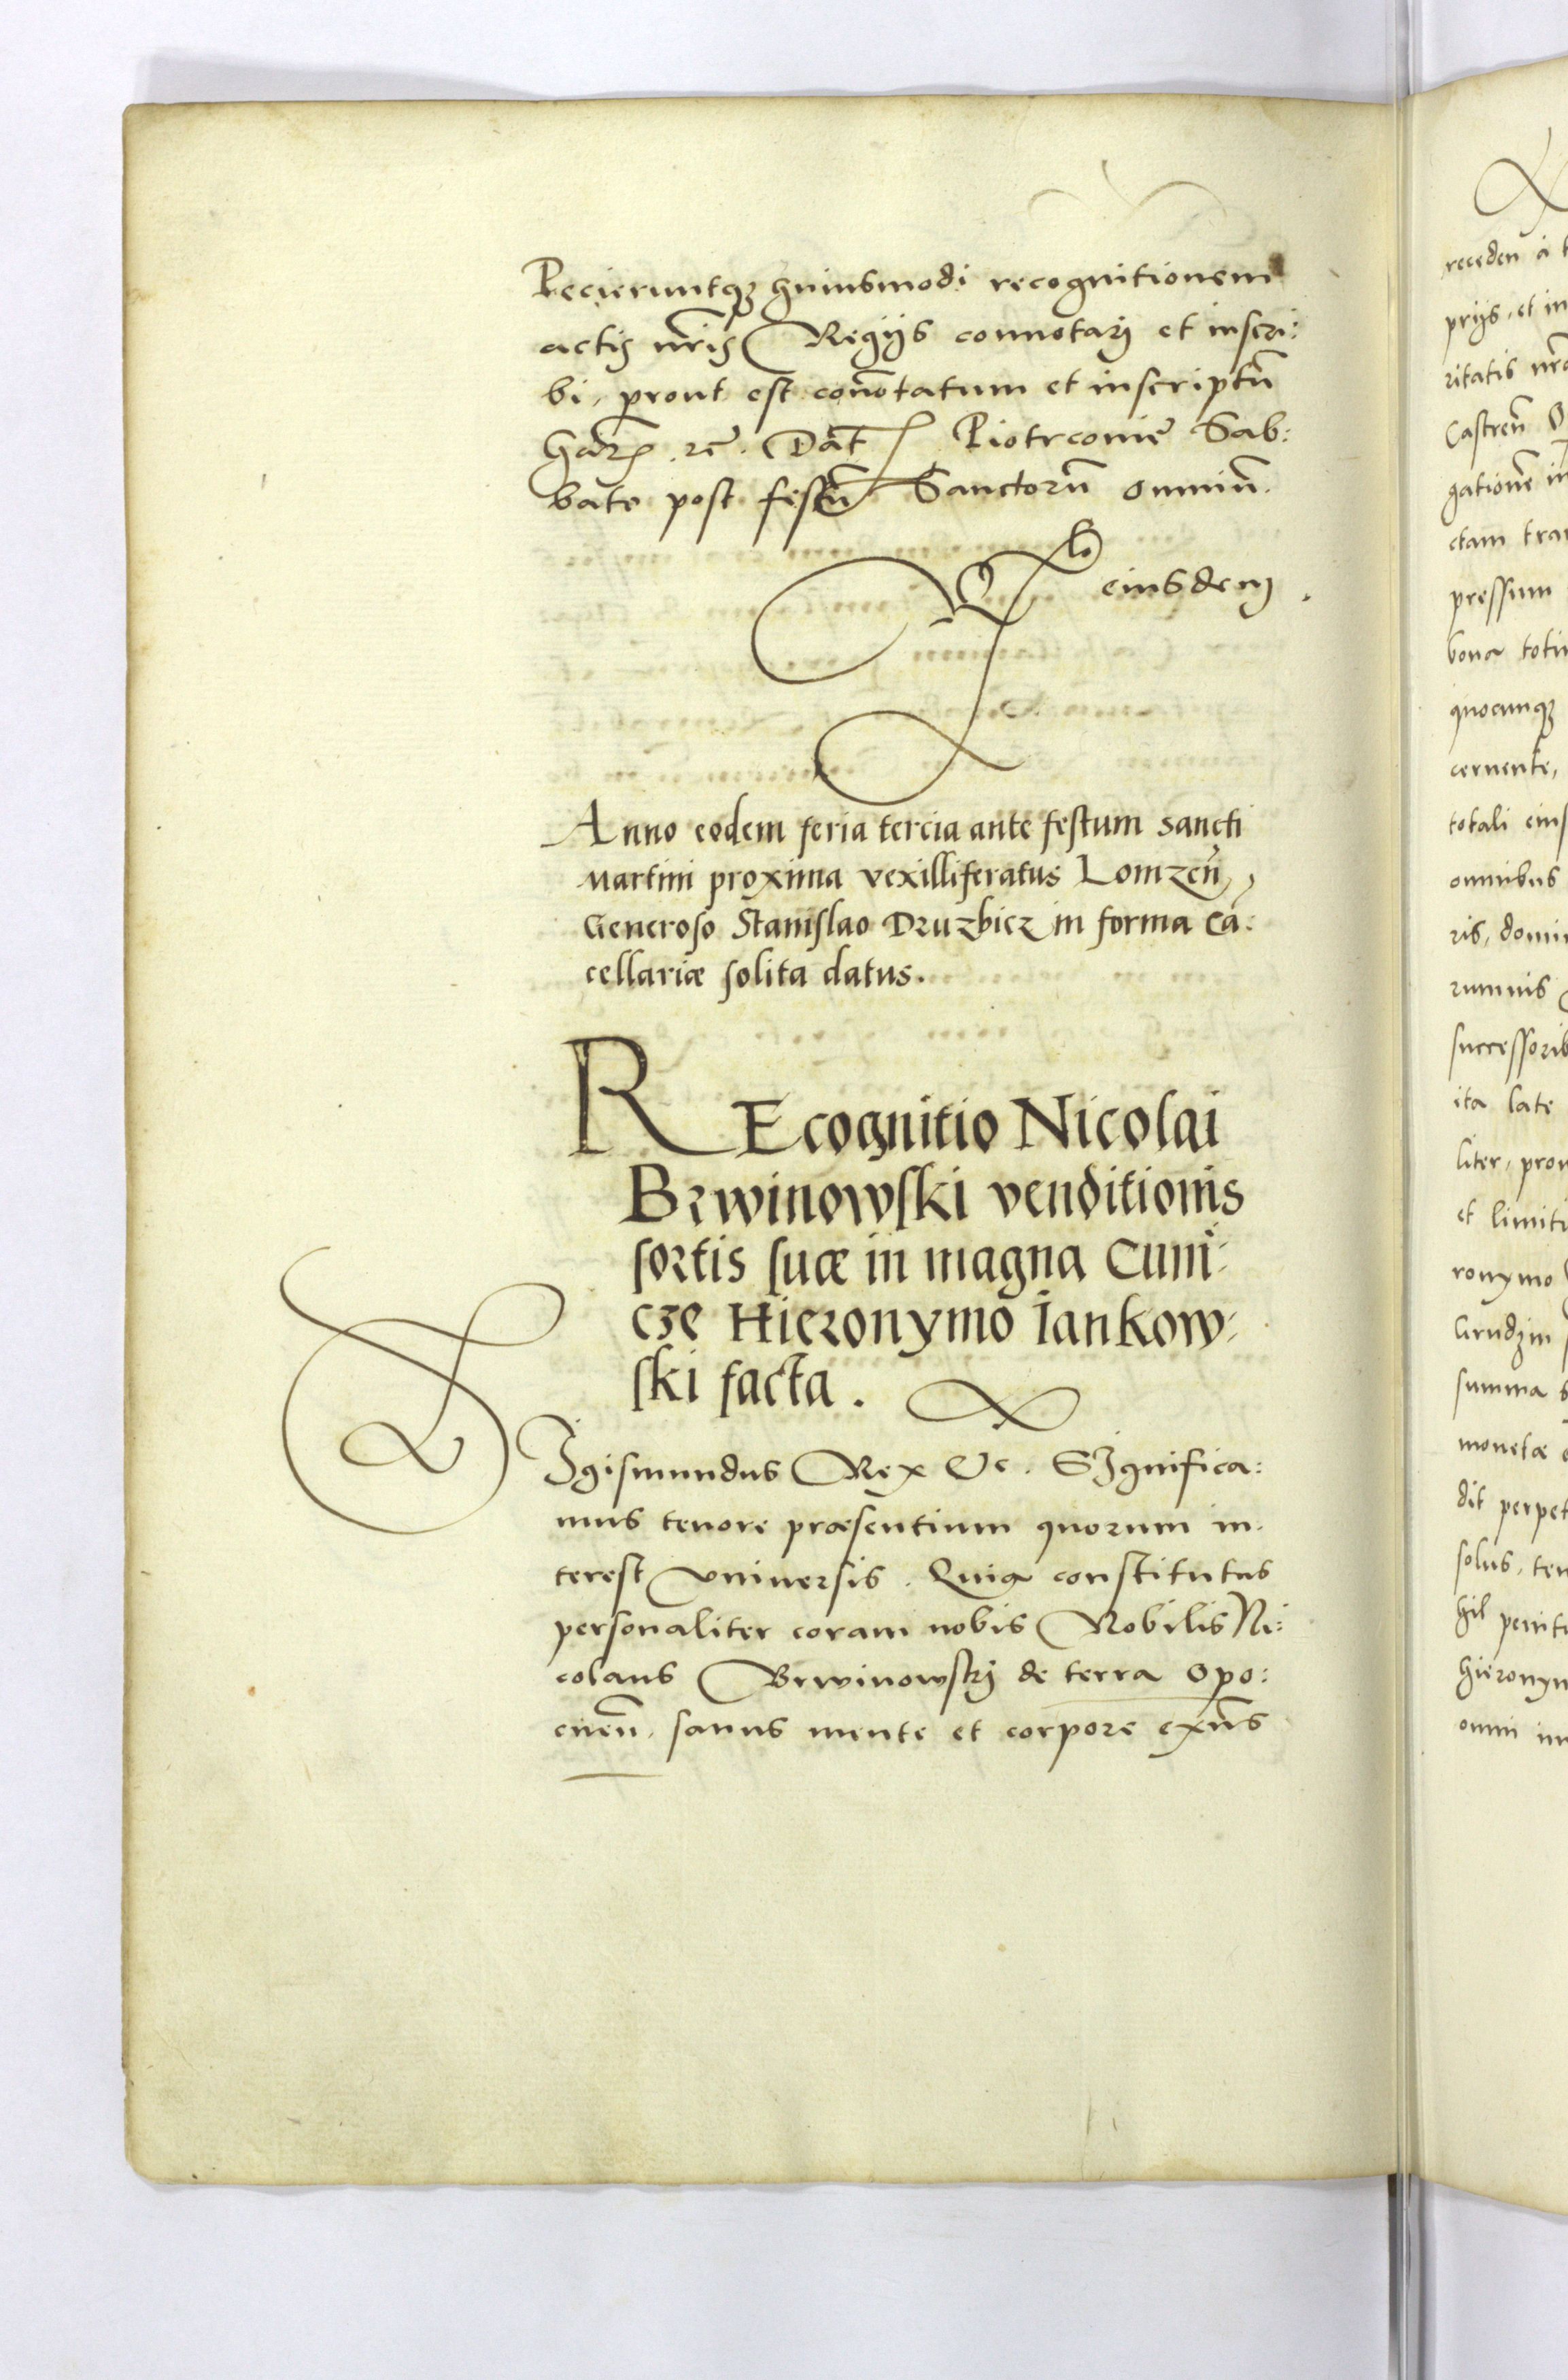 Pecieruntqꝫ huiusmodi recognitionem
actis nr̃is Regijs connotarj et inscri:
bi, prout est cõnotatum et inscriptũ
harz̃ . rc̃ . Dat̃ Piotrconiẽ Sab:
bato post festũ Sanctorũ omniũ.
eiusdem .
Anno eodem feria tercia ante festum sancti
Martini proxima vexilliferatus Lomzeñ,
Generoso Stanislao Druzbicz in forma Cã:
cellariæ solita datus.
REcognitio Nicolai
Brwinowski venditionis
sortis suæ in magna Cuni:
cze Hieronymo Iankow:
ski facta .
SIgismundus Rex &c. SIgnifica:
mus tenore præsentium quorum in
terest vniuersis. Quia constitutus
personaliter coram nobis Nobilis Ni:
colaus Brwinowskj de terra Opo:
cneñ. sanus mente et corpore exñs
receden a
prijs, et in
ritatis nr̃o
Castreñ
gationẽ in
ctam tra
pressum
bona totu
quocunqꝫ
cernente,
totali eius
omnibus
ris, domi
rumnis
successorib
ita late
liter, prou
et limit
ronymo
Grudzin
summa
monetæ
dit perpet
solus, ten
hil penit
hieronym
omni im